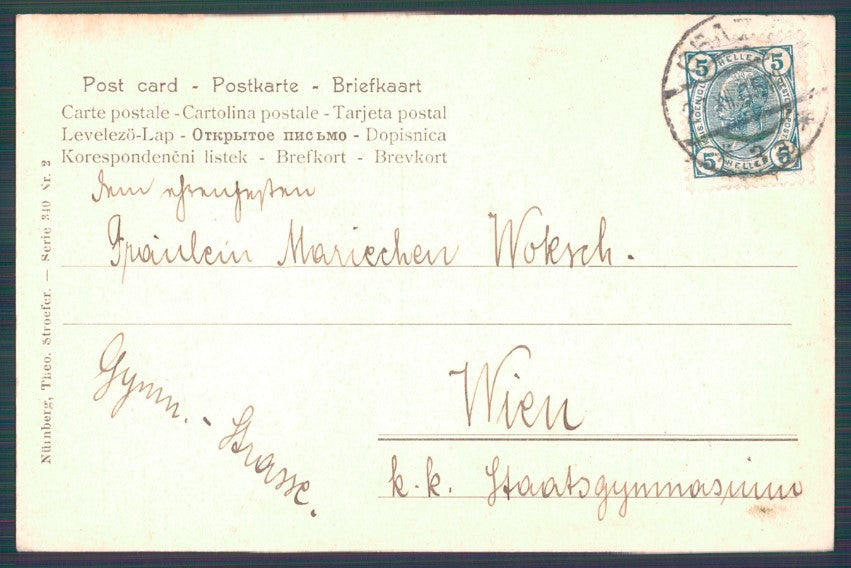 Post card - Postkarte - Briefkaart
Carte postale - Cartolina postale - Tarjeta postal
Levelező-Lap - Открытое письмо - Dopisnica
Korespondenčni listek - Brefkort - Brevkort
dem
Fräulein Mariechen Woksch.
Wien
k. k. Staatsgymnasium
Gymn. - Strasse.
Nürnberg, Theo. Stroefer. — Serie 340 Nr. 2
5 HELLER 5
5 HELLER 5